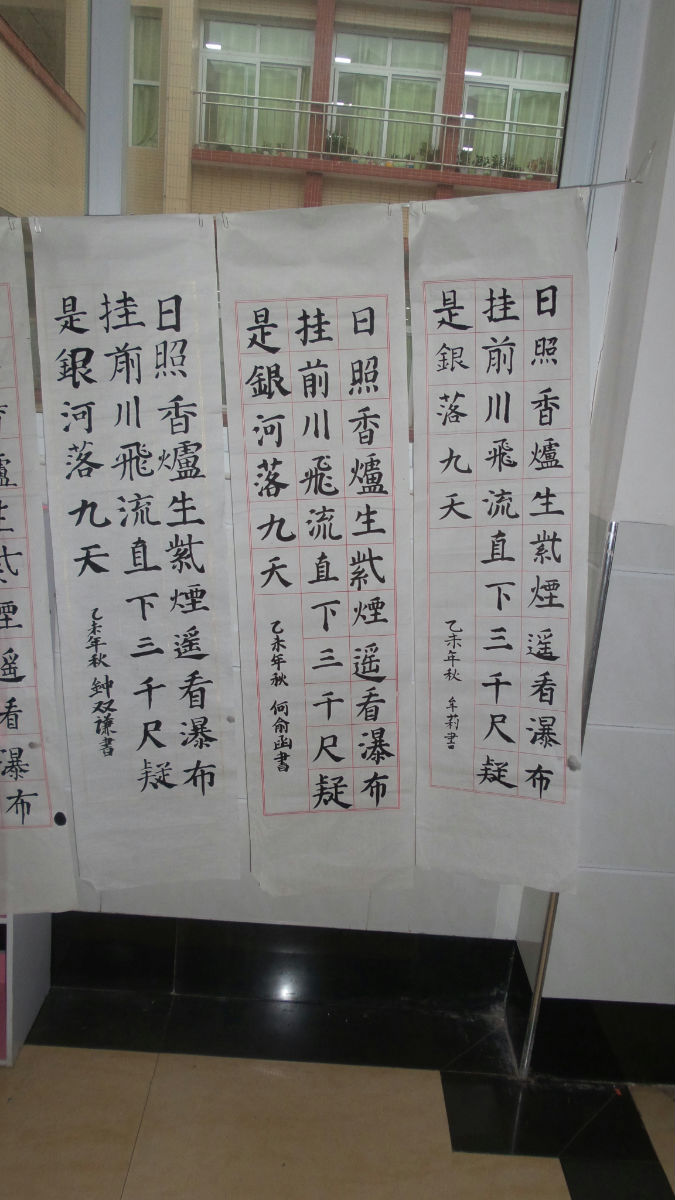 日照香爐生紫煙遥看瀑布
挂前川飛流直下三千尺疑
是銀落九天 乙未年秋 牟莉書
日照香爐生紫煙遥看瀑布
挂前川飛流直下三千尺疑
是銀河落九天 乙未年秋 何俞函書
日照香爐生紫煙遥看瀑布
挂前川飛流直下三千尺疑
是銀河落九天 乙未年秋 鈡双謙書
爐生紫煙遥看瀑布